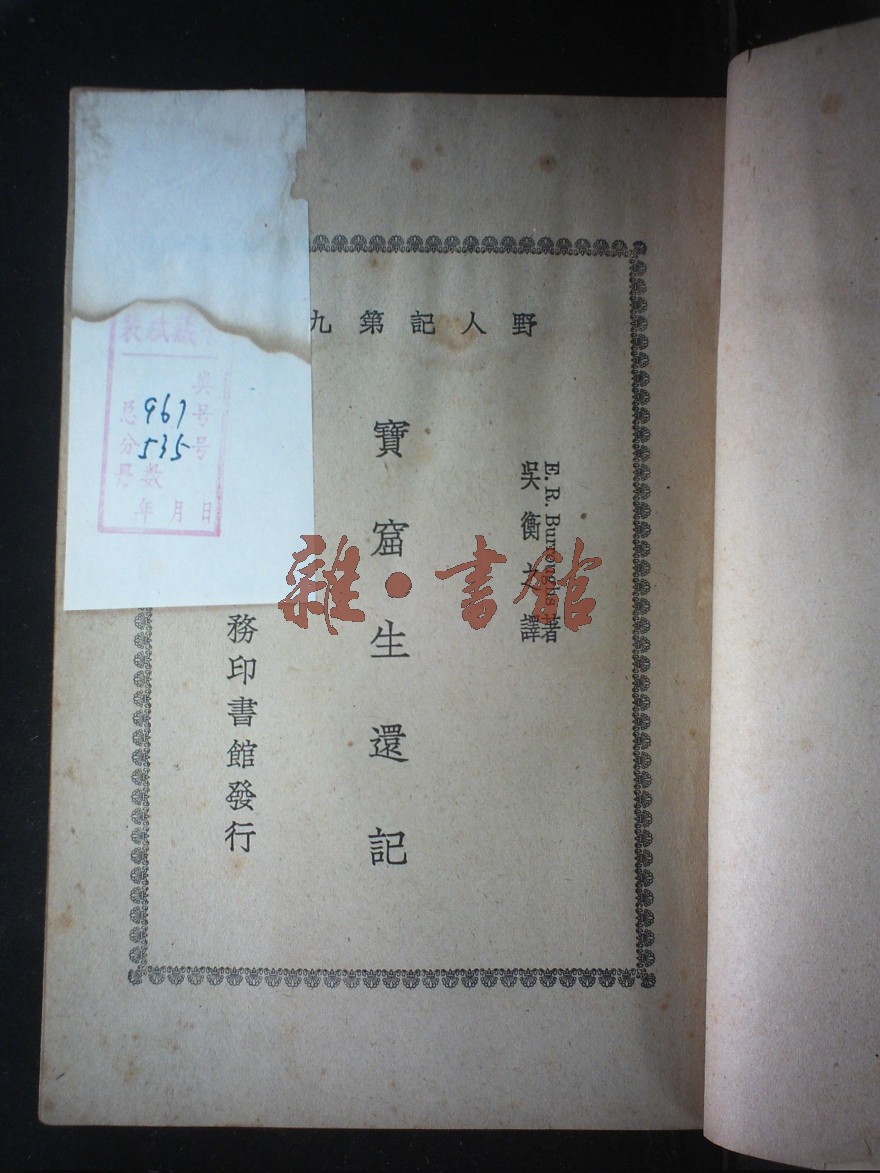 野人記第九
E. R. Burroughs 著
吳衡之譯
寶窟生還記
務印書館發行
雜·書館
类号
总号 967
分号 535
册数
年月日